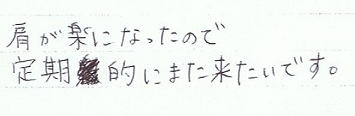 肩が楽になったので
定期的にまた来たいです。